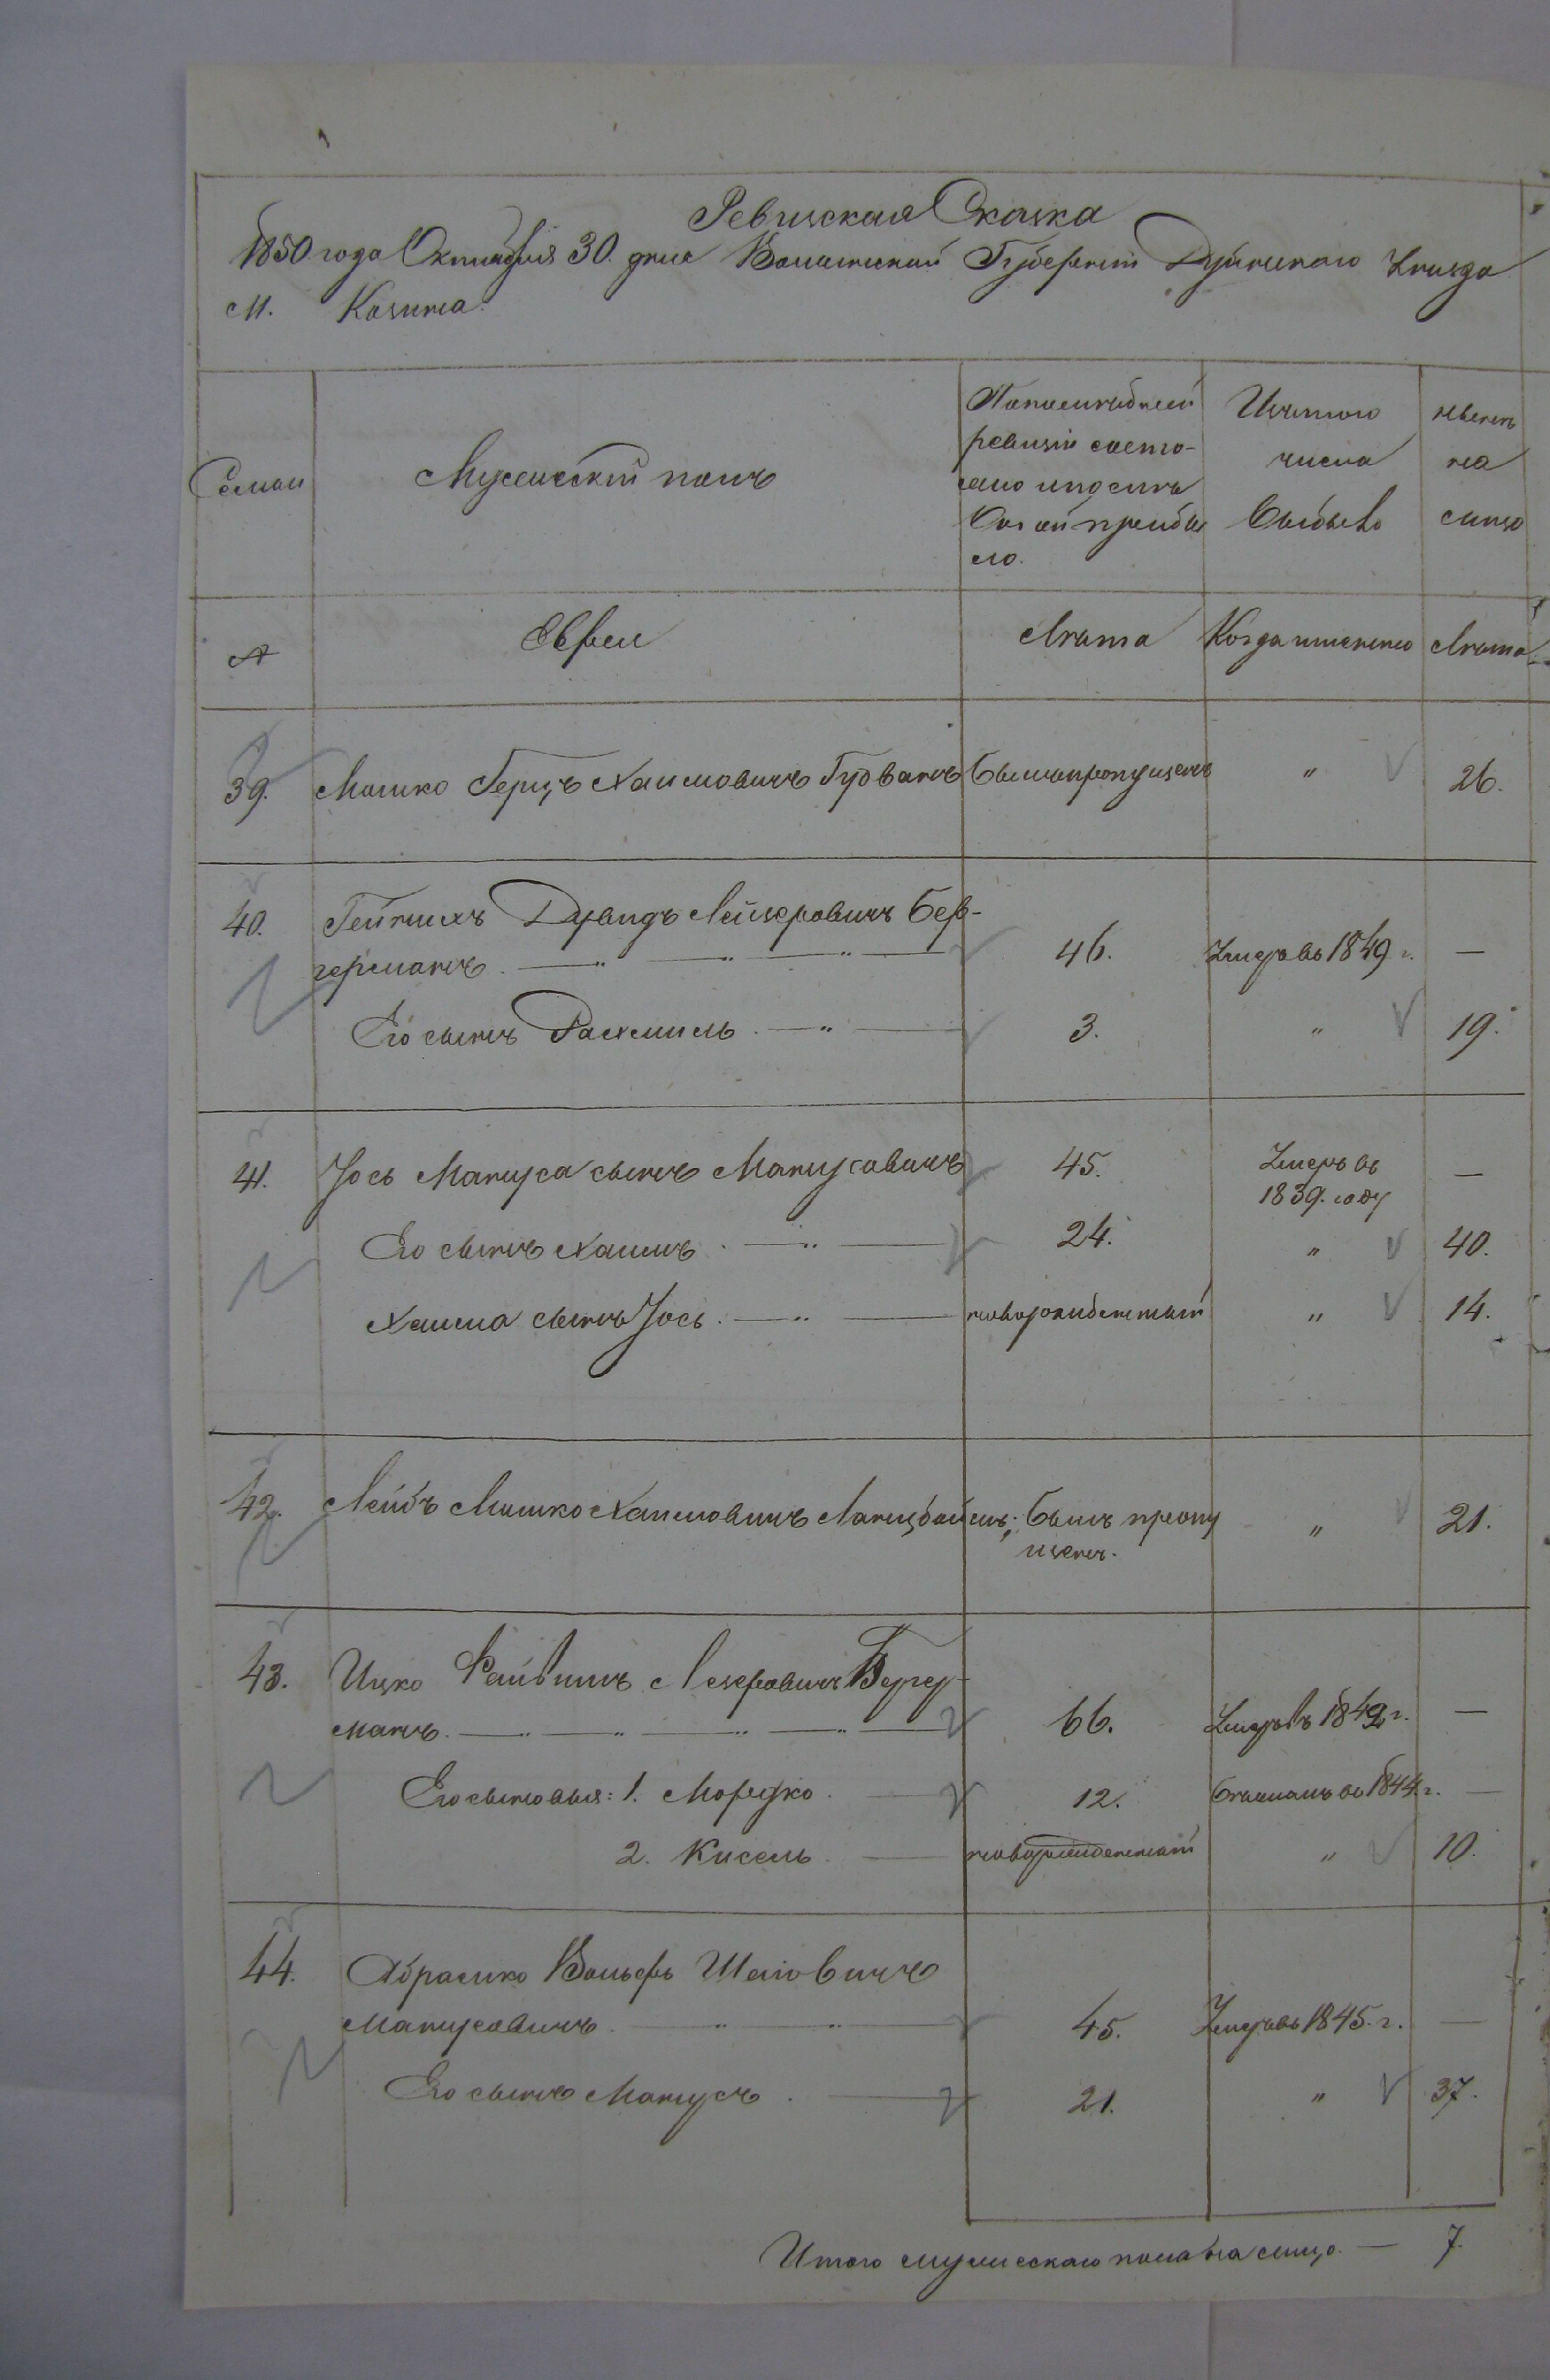 Ревизская Сказка
1850 года Октября 30. дня Волынской Губернии Дубенскаго Уезда
М. Козина.
Семьи
Мужеский полъ
По последней
ревизии состо-
яло и после
оной прибы
ло.
Изъ того
числа
Выбыло
Ныне
на
лицо
№
Евреи
Лета
Когда именно
Лета
39. Мошко Герцъ Хаимовичъ Гудванъ былъ пропущенъ " 26.
40. Дувидъ Лейзеровичъ Бер-
германъ. — " — " — " — 46. Умеръ въ 1849 г. —
Его сынъ Рахмиель. — " — 3. " 19.
41. Іось Мануса сынъ Манусовичъ 45. Умеръ въ
1839. году —
Его сынъ Хаимъ. — " — 24. " 40.
Хаима сынъ Іось. — " — новорожденный " 14.
42. Лейбъ Мошко Хаимовичъ былъ пропу
щенъ. " 21.
43. Ицко Файвишъ Лезеровичъ
манъ. — " — " — " — " — 66. Умеръ въ 1849 г. —
Его сыновья: 1. Мордко. — 12. въ 1844. г. —
2. Кисель. — новорожденный " 10.
44. Абрамко Вольфъ Шаповичъ
Манусовичъ. " — " — 45. Умеръ въ 1845. г. —
Его сынъ Манусъ. — 21. " 37.
Итого мужескаго пола на лицо. — 7.